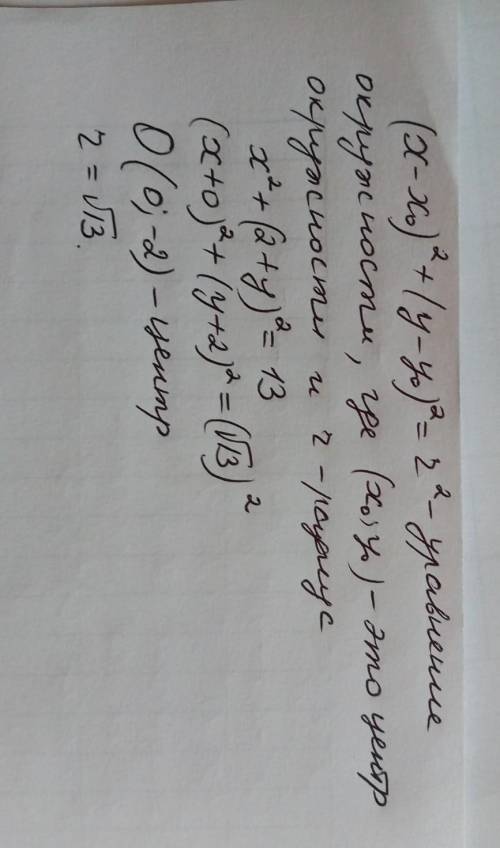 (x-x₀)²+(y-y₀)²=r²- уравнение
окружности, где (x₀; y₀) - это центр
окружности и r - радиус
x²+(2+y)²=13
(x+0)²+(y+2)²=(√13)²
O(0;-2)-центр
r=√13.